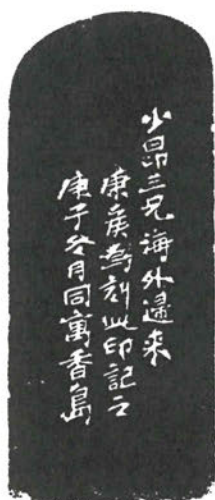 少昂三兄海外歸来
康矦為刻此印記之
庚子冬月同寓香島